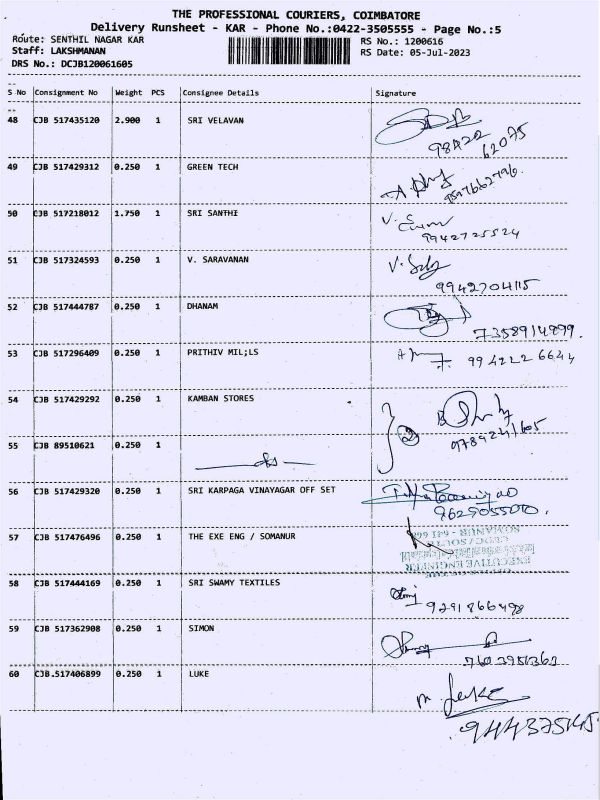 THE PROFESSIONAL COURIERS, COIMBATORE
Delivery Runsheet - KAR - Phone No.:0422-3505555 - Page No.:5
Route: SENTHIL NAGAR KAR RS No.: 1200616
Staff: LAKSHMANAN RS Date: 05-Jul-2023
DRS No.: DCJB120061605
S No Consignment No Weight PCS Consignee Details Signature
48 CJB 517435120 2.900 1 SRI VELAVAN
98422
62075
49 CJB 517429312 0.250 1 GREEN TECH
9597662796.
50 CJB 517218012 1.750 1 SRI SANTHI
9942725524
51 CJB 517324593 0.250 1 V. SARAVANAN
9942704115
52 CJB 517444787 0.250 1 DHANAM
7358914899.
53 CJB 517296409 0.250 1 PRITHIV MIL;LS
994222 6644
54 CJB 517429292 0.250 1 KAMBAN STORES
2
9789241605
55 CJB 89510621 0.250 1
56 CJB 517429320 0.250 1 SRI KARPAGA VINAYAGAR OFF SET
9629055010.
57 CJB 517476496 0.250 1 THE EXE ENG / SOMANUR
SOMANUR - 641 668
EXECUTIVE ENGINEER
58 CJB 517444169 0.250 1 SRI SWAMY TEXTILES
9291866498
59 CJB 517362908 0.250 1 SIMON
7603951362
60 CJB.517406899 0.250 1 LUKE
M. Luke